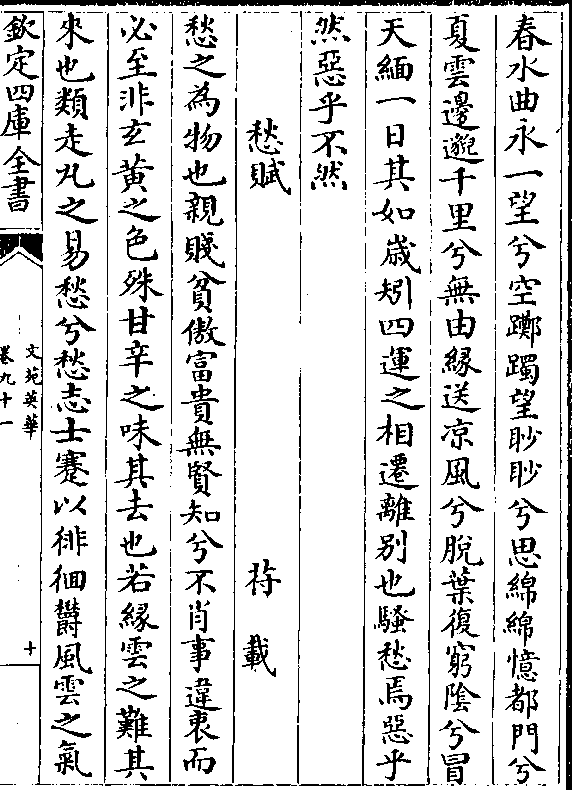 春水曲永一望兮空躑躅望眇眇兮思綿綿憶都門兮
夏雲邊邈千里兮無由緣送凉風兮脫葉復窮陰兮冒
天緬一日其如歲矧四運之相遷離別也騷愁焉惡乎
然惡乎不然
愁賦
符載
愁之為物也親賤貧傲富貴無賢知兮不肖事違衷而
必至非玄黄之色殊甘辛之味其去也若緣雲之難其
來也類走丸之易愁兮愁志士蹇以徘徊鬱風雲之氣
欽定四庫全書
文苑英華
卷九十一
十